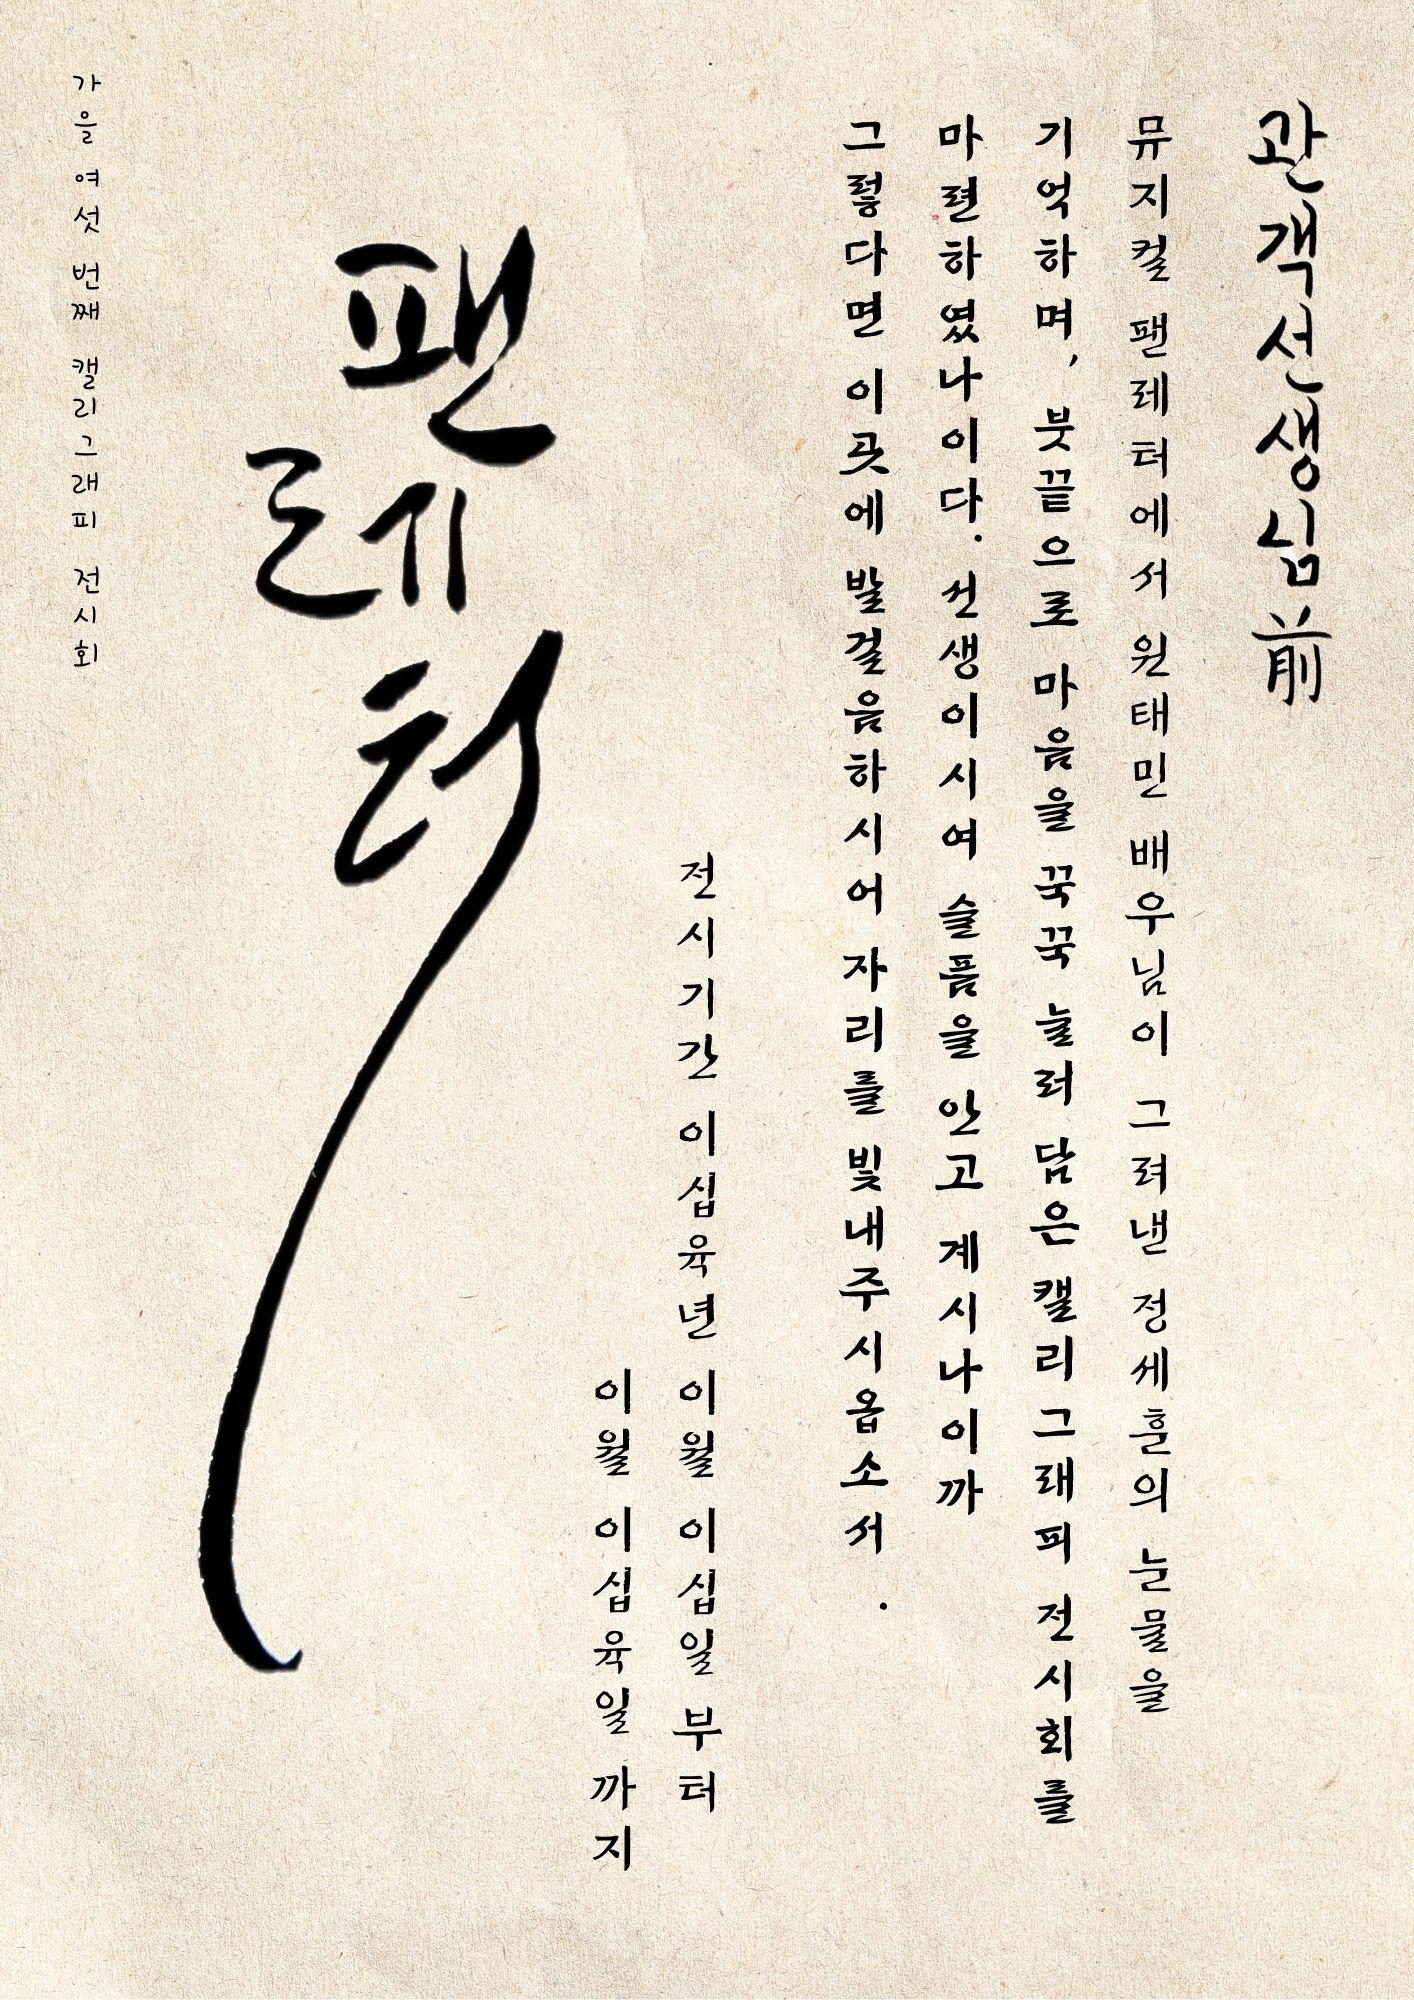 관객선생님前
뮤지컬 팬레터에서 원태민 배우님이 그려낸 정세훈의 눈물을
기억하며, 붓끝으로 마음을 꾹꾹 눌러 담은 캘리그래피 전시회를
마련하였나이다. 선생이시여 슬픔을 안고 계시나이까
그렇다면 이곳에 발걸음하시어 자리를 빛내주시옵소서.
전시기간 이십육년 이월 이십일 부터
이월 이십육일 까지
팬레터
가을 여섯 번째 캘리그래피 전시회